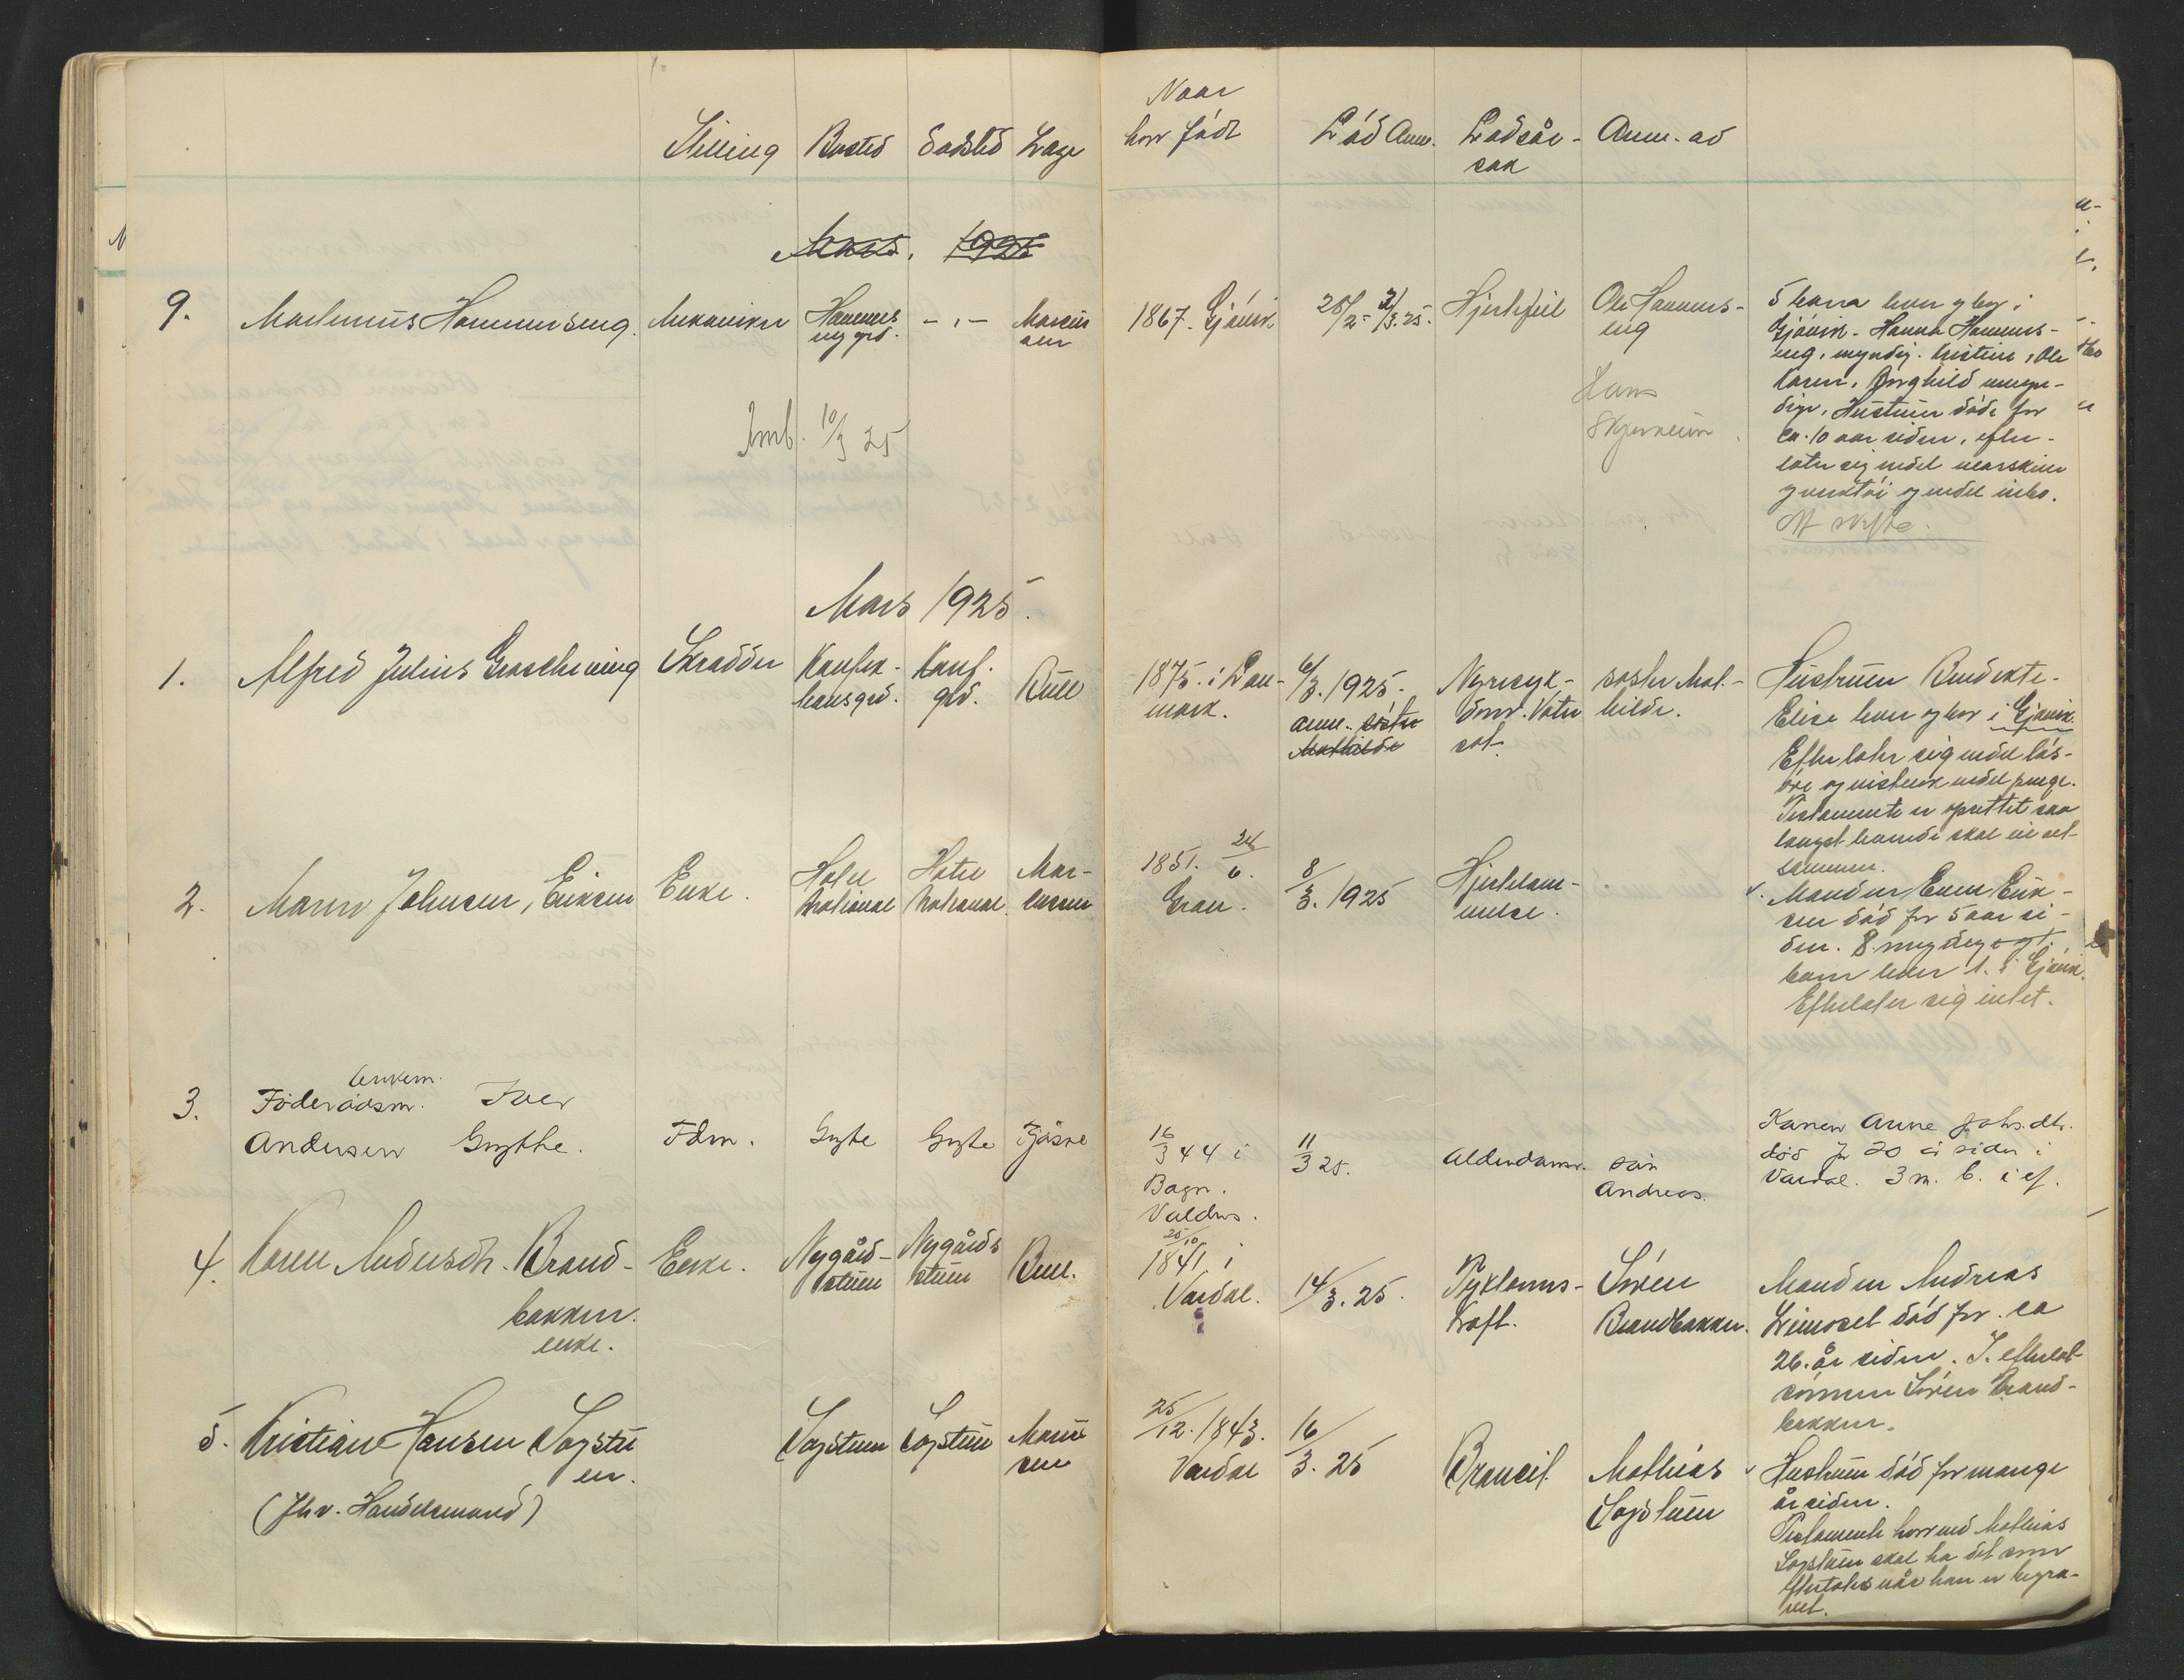 Stilling Bosted Dødsted Læge
Naar
hvor født
Død Anm. Dødsår-
sak
Anm. av
Mars. 1925
9. Martinus Hammerseng. Mekaniker Hammers
eng grd. - " - Marius
sen
1867. Gjøvik 28/2- 3/3.25. Hjertefeil Ole Hammers-
eng
Hans
Skjerheim
5 barn lever og bor i
Gjøvik. Hanna Hammers-
eng, myndig. Kristian, Ole
Karen, Borghild umyn-
dige. Hustruen døde for
ca. 10 aar siden, efter-
later sig endel maskiner
og verktøi og endel indbo.
Imb. 10/3 25
Mars 1925.
1. Alfred Julius Graschening Skrædder Kaufek-
hansgrd. Kauf.
grd. Bull
1875. i Dan-
mark.
6/3.1925.
anm. søster
Mathilde
Nyresyk-
dom. Vater
sot.
søster Mat-
hilde.
Hustruen Benedikte
Elise lever og bor i Gjøvik.
Efterlater sig endel løs-
øre og mistenk endel penge.
Testamente er oprettet saa
langst levende skal ha alt
sammen.
2. Maren Johnsen, Eriksen Enke. Hotel
National Hotel
National Mar-
iussen
1851. 24/6.
Gran.
8/3.1925
Hjertelam-
melse.
Manden Even Erik-
sen død for 5 aar si-
den. 8 myndige gl.
barn lever 1. i Gjøvik.
Efterlater sig intet.
3. Føderaadsm. enkem. Iver
Andersen Grythe. Fdm. Gryte Gryte Fjøsne
16/3 44 i
Bagn.
Valdres.
11/3 25.
Alderdomsv.
søn
Andreas.
Karen Anne Johs.dtr.
død for 20 år siden i
Vardal. 3 m. b. i ef.
4. Karen Andersdtr. Brand-
bakken.
enke.
Enke. Nygård-
stuen Nygårds
stuen Bull.
25/10
1841 i
Vardal.
14/3.25.
Tyktarms-
kræft.
Søren
Brandbakken.
Manden Andreas
Limoset død for ca
26 år siden. I. efterlat
sønnen Søren Brand-
bakken.
5. Kristian Hansen Sogstu
en.
(Fhv. Handelsmand)
Sogstuen Sogstuen Marius
sen
25/12.1843.
Vardal
16/3.25
Broncit
Mathias
Sogstuen
Hustruen død for mange
år siden.
Testamente hvorved Mathias
Sogstuen skal ha det som
efterlates når han er begra-
vet.